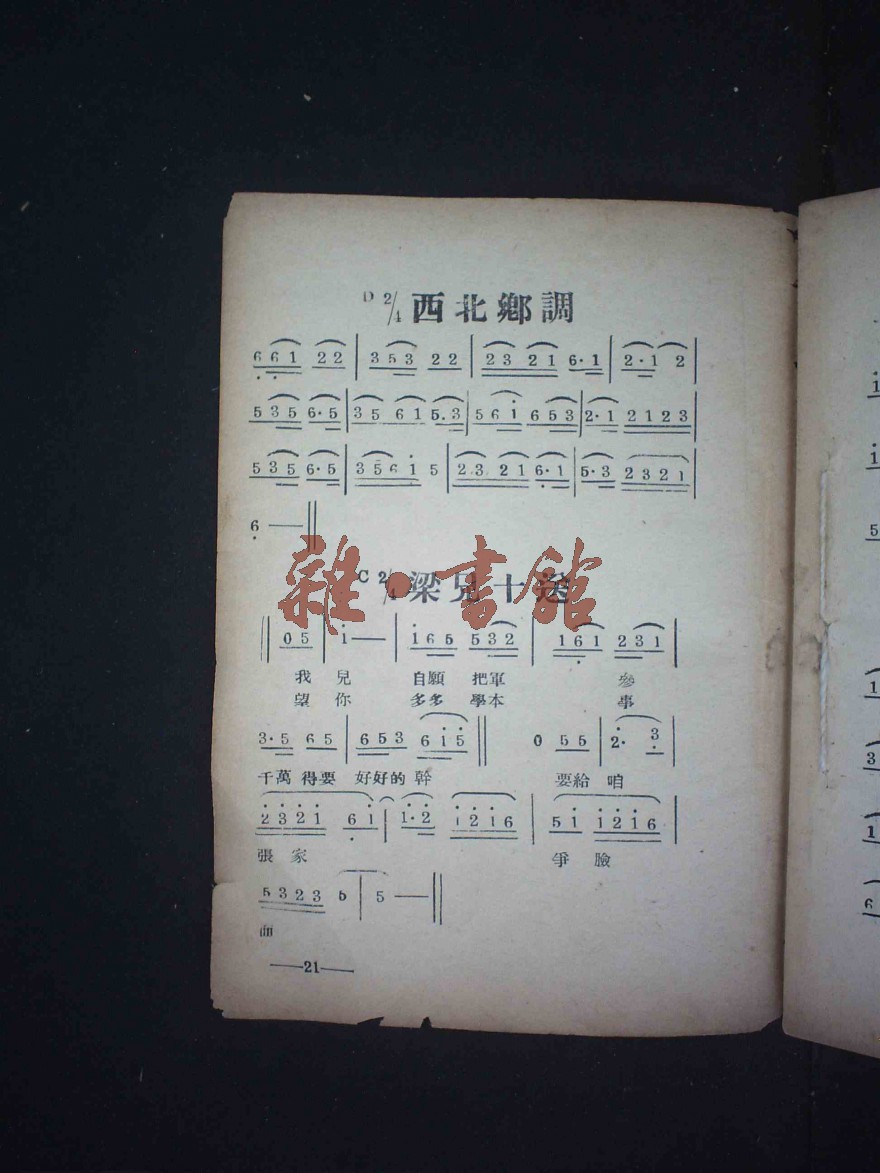 D 2/4 西北鄉調
6 6 1 2 2 | 3 5 3 2 2 | 2 3 2 1 6· 1 | 2· 1 2 |
5 3 5 6· 5 | 3 5 6 1 5. 3 | 5 6 i 6 5 3 | 2· 1 2 1 2 3 |
5 3 5 6· 5 | 3 5 6 i 5 | 2 3 2 1 6· 1 | 5· 3 2 3 2 1 |
6 — ||
雜·書館
C 2/4 梁兄十送
|| 0 5 | i — | i 6 5 5 3 2 | 1 6 1 2 3 1 |
我 兒 自願 把軍 參
望 你 多多 學本 事
3· 5 6 5 | 6 5 3 6 i 5 || 0 5 5 | 2· 3 |
千萬 得要 好好的 幹 要給 咱
2 3 2 1 6 i | 1· 2 i 2 i 6 | 5 i i 2 i 6 |
張 家 爭 臉
5 3 2 3 6 | 5 — ||
面
—21—
1
i
5
1
3
1
6